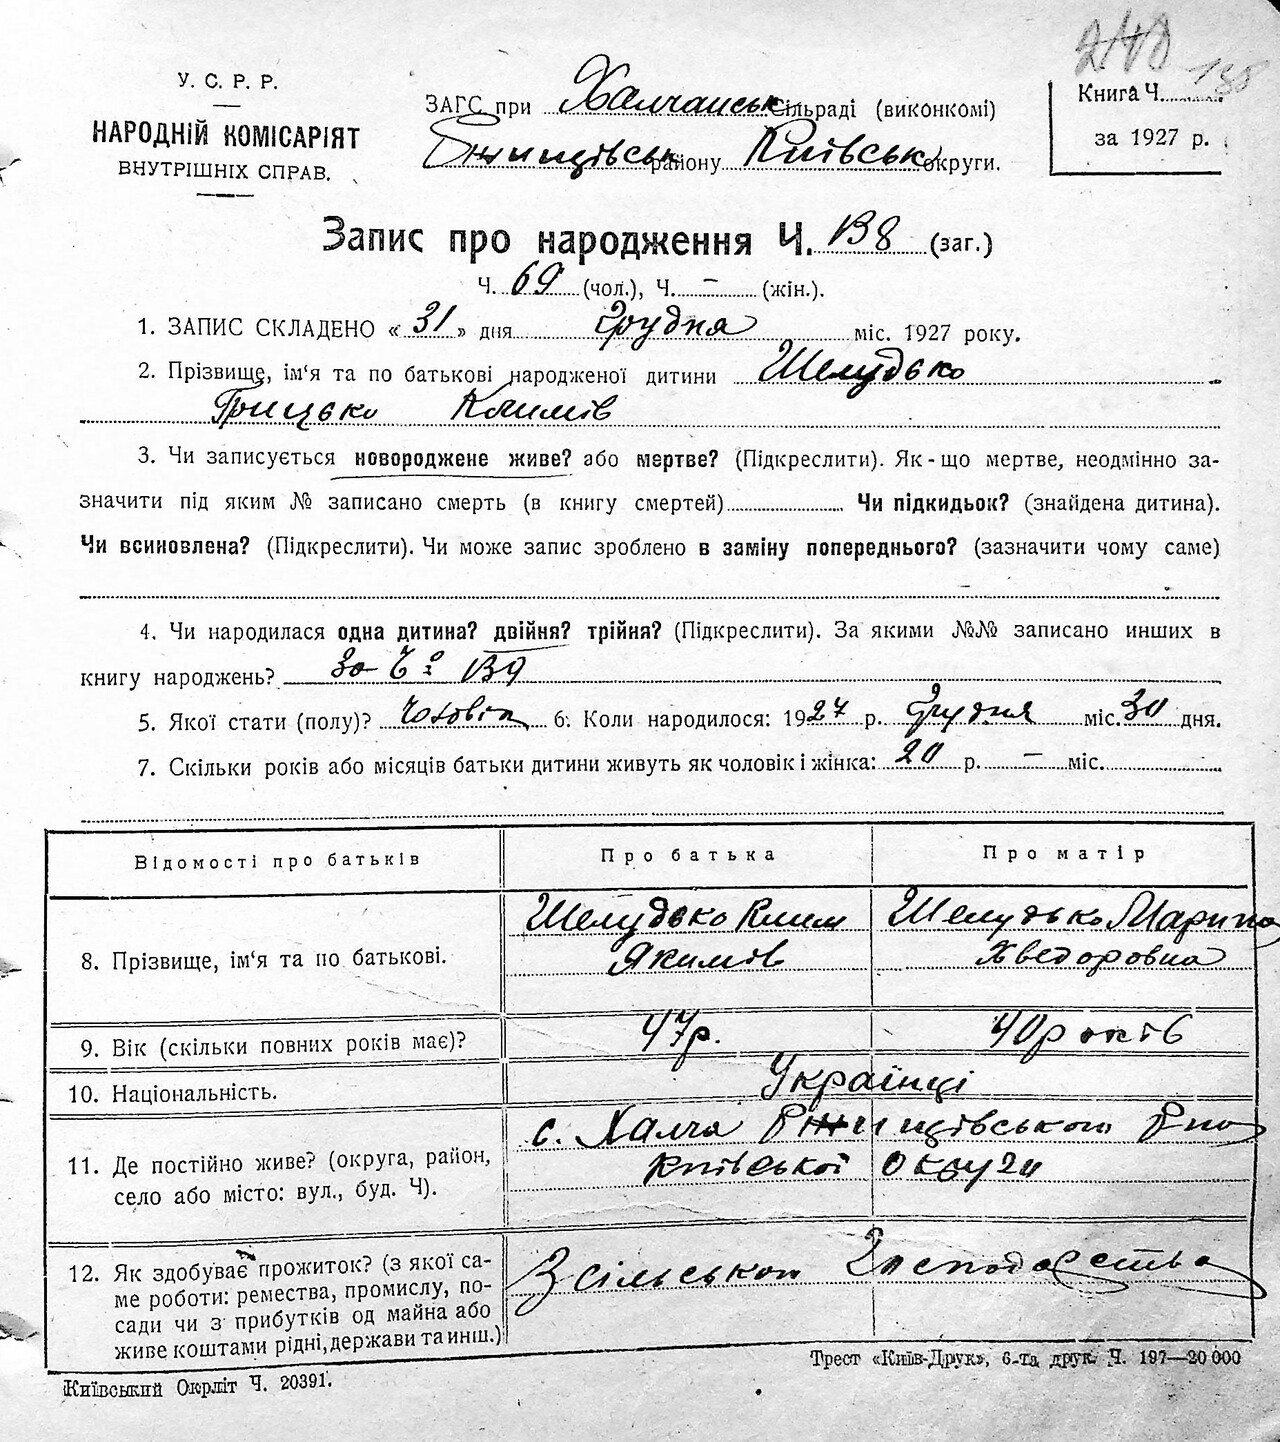 240 138
У. С. Р. Р.
НАРОДНІЙ КОМІСАРІЯТ
ВНУТРІШНІХ СПРАВ.
ЗАГС при Халчанськ сільраді (виконкомі)
Ржищівськ району Київськ округи.
Книга Ч.
за 1927 р.
Запис про народження Ч. 138 (заг.)
Ч. 69 (чол.), Ч. – (жін.).
1. ЗАПИС СКЛАДЕНО « 31 » дня Грудня міс. 1927 року.
2. Прізвище, ім‘я та по батькові народженої дитини Шелудько
Грицько Климів
3. Чи записується новороджене живе? або мертве? (Підкреслити). Як-що мертве, неодмінно за-
значити під яким № записано смерть (в книгу смертей) Чи підкидьок? (знайдена дитина).
Чи всиновлена? (Підкреслити). Чи може запис зроблено в заміну попереднього? (зазначити чому саме)
–
4. Чи народилася одна дитина? двійня? трійня? (Підкреслити). За якими №№ записано инших в
книгу народжень? За Ч 139
5. Якої стати (полу)? Чоловіч 6. Коли народилося: 1927 р. Грудня міс. 30 дня.
7. Скільки років або місяців батьки дитини живуть як чоловік і жінка: 20 р. – міс.
Відомості про батьків Про батька Про матір
8. Прізвище, ім‘я та по батькові. Шелудько Клим Шелудько Марина
Якимів Хведоровна
9. Вік (скільки повних років має)? 47р. 40 років
10. Національність. Українці
с. Халча Ржищівськом Р-ну
11. Де постійно живе? (округа, район, Київської Округи
село або місто: вул., буд. Ч).
12. Як здобуває прожиток? (з якої са- З сільського Господарства
ме роботи: ремества, промислу, по-
сади чи з прибутків од майна або
живе коштами рідні, держави та инш.)
Київський Окрліт Ч. 20391.
Трест «Київ-Друк», 6-та друк. Ч. 197—20 000